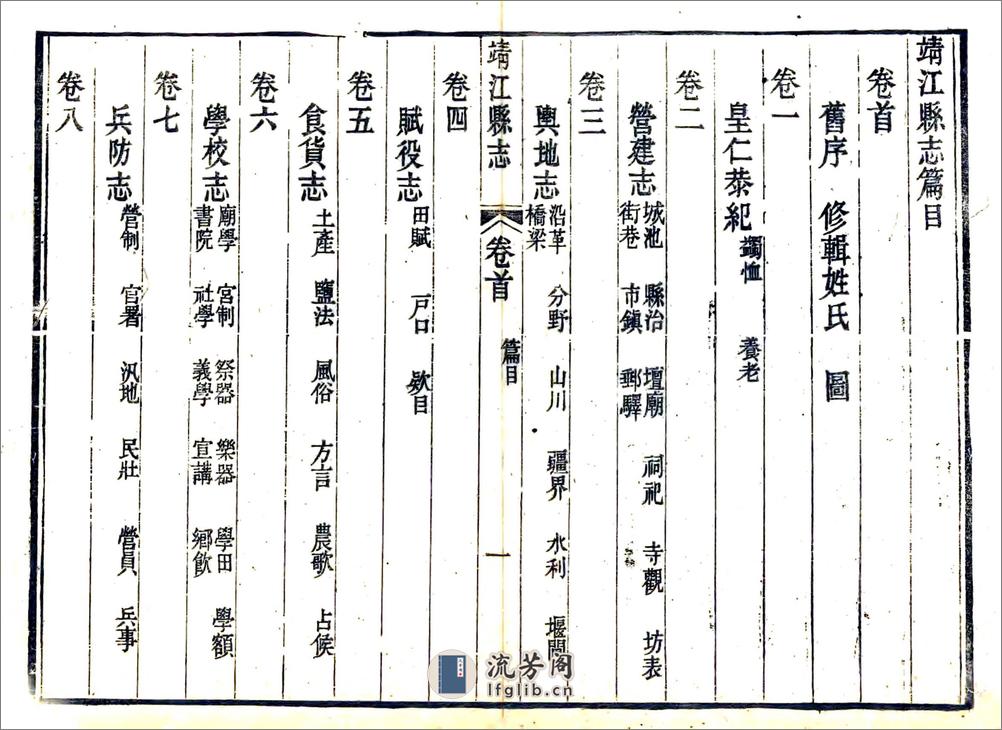 靖江縣志篇目
卷首
舊序 修輯姓氏 圖
卷一
皇仁恭紀 蠲恤 養老
卷二
營建志 城池 縣治 壇廟 祠祀 寺觀 坊表
街巷 市鎮 郵驛
卷三
輿地志 沿革 分野 山川 疆界 水利 堰閘
橋梁
靖江縣志 卷首 篇目 一
卷四
賦役志 田賦 戶口 欵目
卷五
食貨志 土產 鹽法 風俗 方言 農歌 占候
卷六
學校志 廟學 宮制 祭器 樂器 學田 學額
書院 社學 義學 宣講 鄉飲
卷七
兵防志 營制 官署 汛地 民壯 營員 兵事
卷八
流芳阁
lfglib.cn